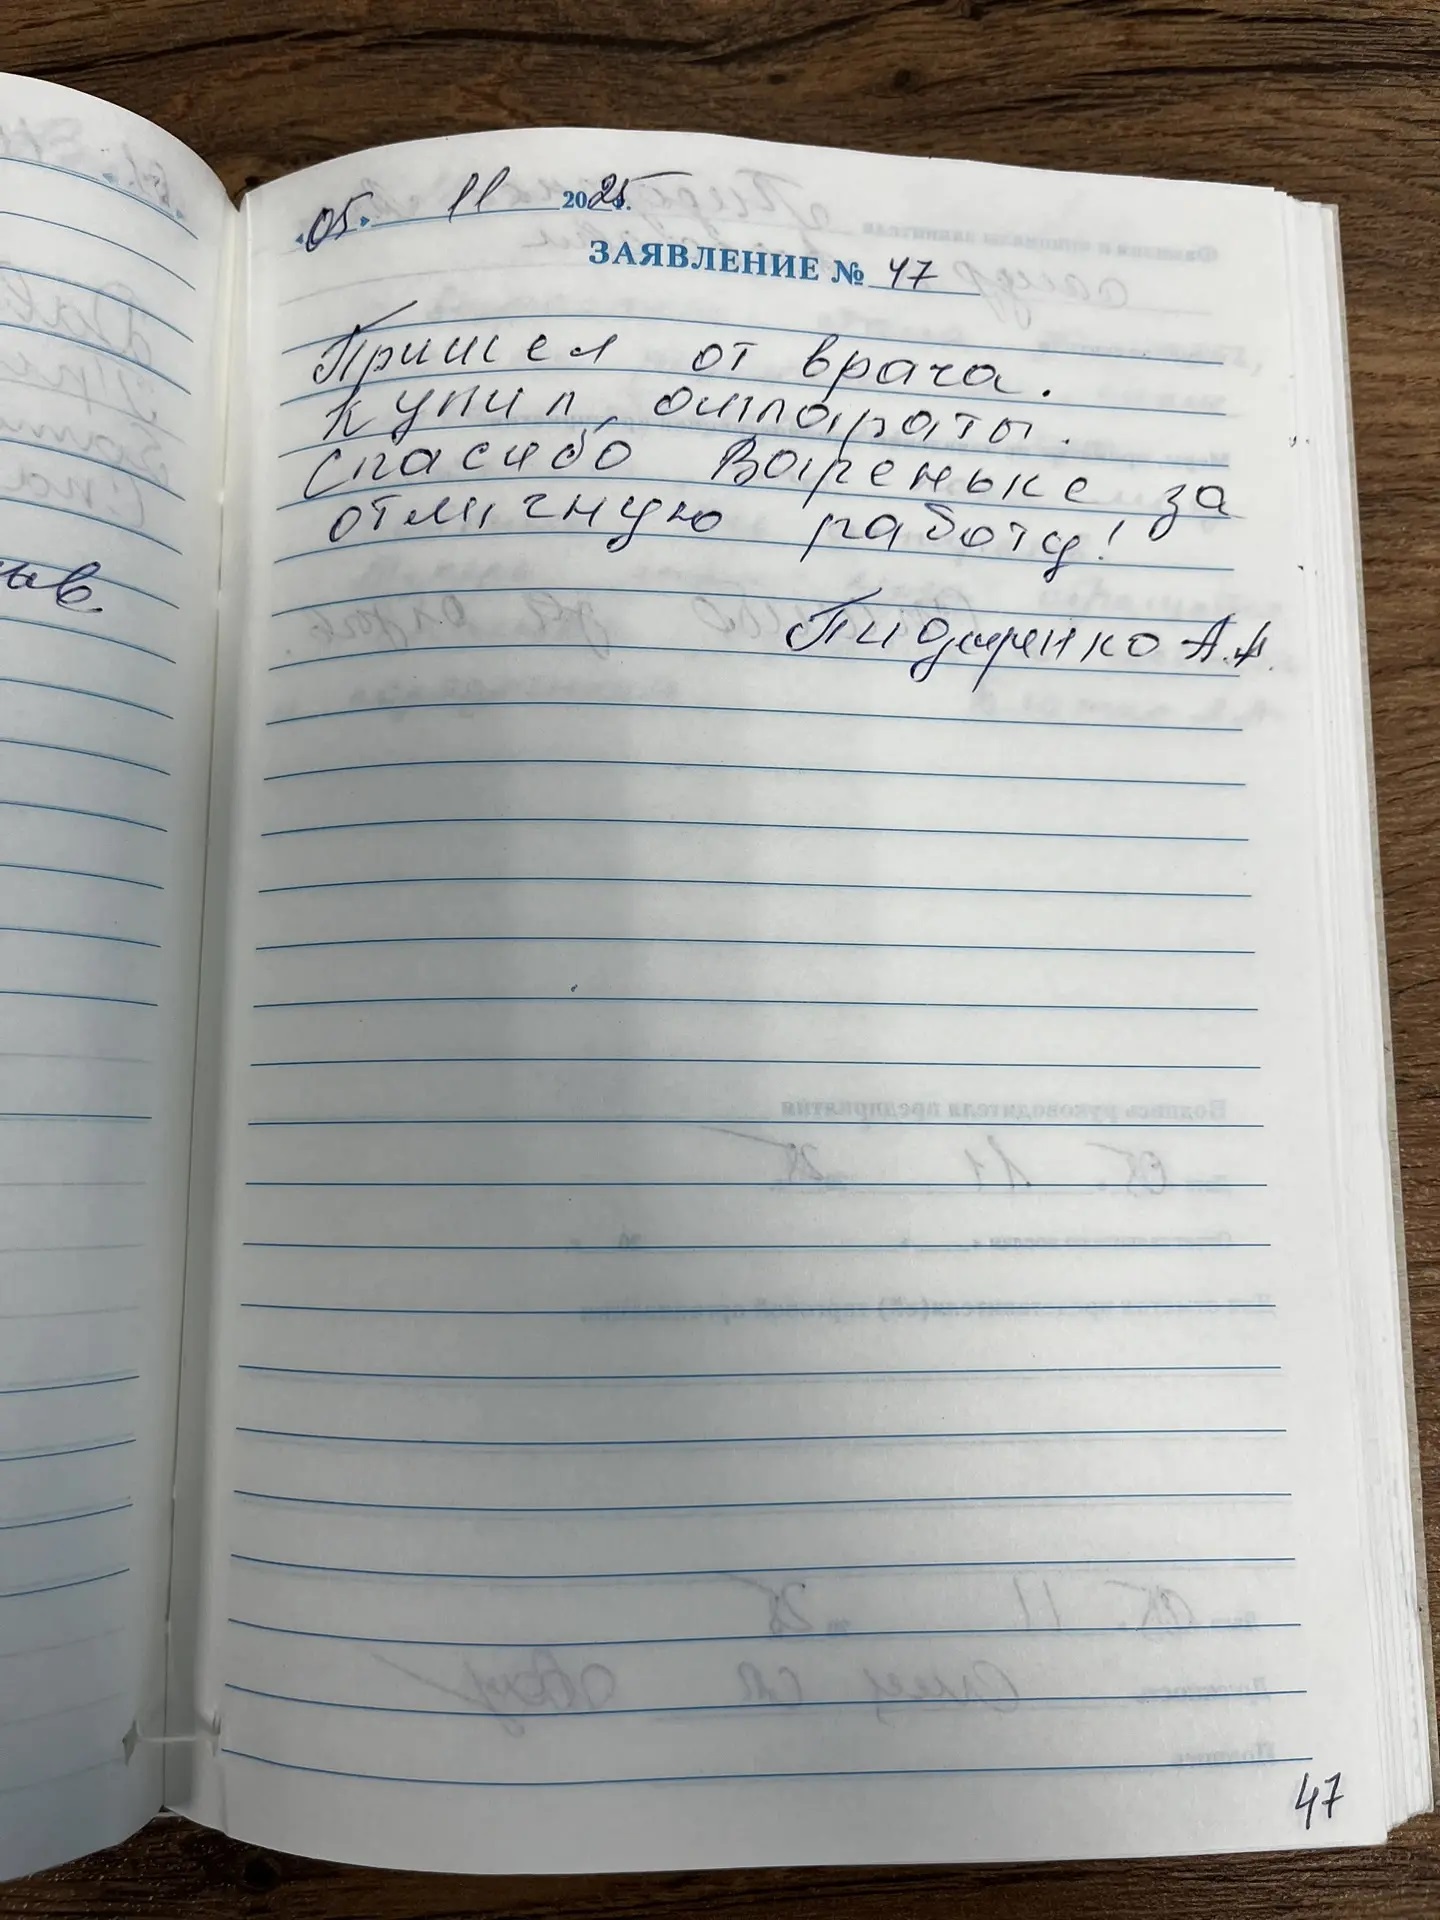 «05» 11 2025 г.
ЗАЯВЛЕНИЕ № 47
Пришел от врача.
Купил аппараты.
Спасибо Вареньке за
отличную работу!
А.А.
ыв
47